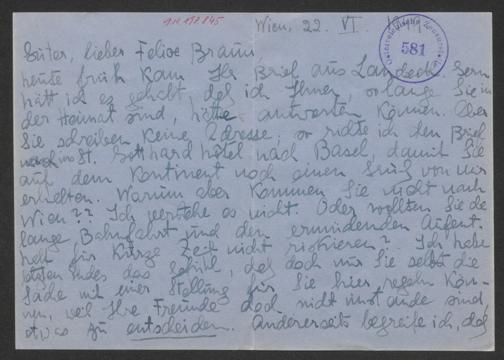 I.N. 198.845
Wien, 22. VI.
581
Guter, lieber Felix Braun,
heute früh kam Ihr Brief aus Landeck. Gern
hätt ich es gehabt, daß ich Ihnen, solange Sie in
der Heimat sind, hätte antworten können. Aber
Sie schreiben keine Adresse, so richte ich den Brief
ins St. Gotthard hôtel nach Basel, damit Sie
auf dem Kontinent noch einen Gruß von mir
erhalten. Warum aber kommen Sie nicht nach
Wien?? Ich verstehe es nicht. Oder wollten Sie die
lange Bahnfahrt und den ermüdenden Aufent-
halt für kurze Zeit nicht riskieren? Ich habe
das Gefühl, daß doch nur Sie selbst die
Sache mit einer Stellung für Sie hier regeln kön-
nen, weil Ihre Freunde doch nicht imstande sind,
etwas zu entscheiden. Andererseits begreife ich, daß